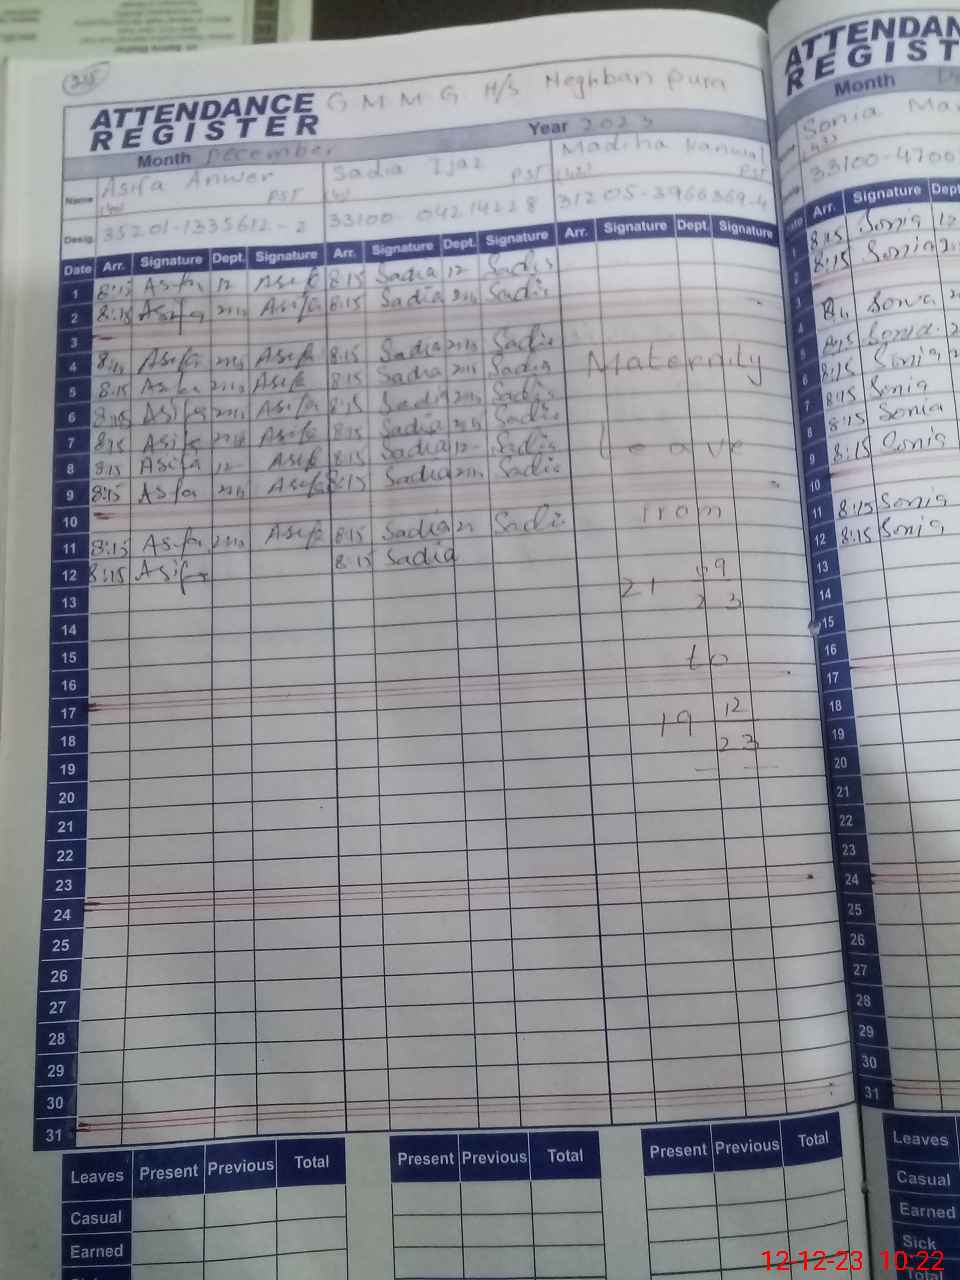 ATTENDANCE REGISTER G M M G H/S Neghban pura
Month December Year 2023
Name Asifa Anwer PST Sadia Ijaz PST Madiha Kanwal PST
Desig. 35201-1335612-2 33100-04214228 31205-3966369-4
Date Arr. Signature Dept. Signature Arr. Signature Dept. Signature Arr. Signature Dept. Signature
1 8:15 Asifa 12 Asifa 8:15 Sadia 12 Sadia
2 8:15 Asifa Asifa 8:15 Sadia Sadia
3
4 Asifa Asifa 8:15 Sadia Sadia Maternity
5 8:15 Asifa Asifa 8:15 Sadia Sadia
6 8:15 Asifa Asifa 8:15 Sadia Sadia
7 8:15 Asifa Asifa 8:15 Sadia Sadia Leave
8 8:15 Asifa 12 Asifa 8:15 Sadia 12 Sadia
9 8:15 Asifa Asifa 8:15 Sadia Sadia
10 from
11 8:15 Asifa Asifa 8:15 Sadia Sadia
12 8:15 Asifa 8:15 Sadia
13 21 09 23
14
15 to
16
17
18 19 12 23
19
20
21
22
23
24
25
26
27
28
29
30
31
Leaves Present Previous Total Present Previous Total Present Previous Total
Casual
Earned
ATTENDAN
REGIST
Month
Sonia
33100-4700
Arr. Signature Dept
1 8:15 Sonia 12
2 8:15 Sonia
3
4 Sonia
5 Sonia
6 8:15 Sonia
7 8:15 Sonia
8 8:15 Sonia
9 8:15 Sonia
10
11 8:15 Sonia
12 8:15 Sonia
13
14
15
16
17
18
19
20
21
22
23
24
25
26
27
28
29
30
31
Leaves
Casual
Earned
Sick
Total
12-12-23 10:22